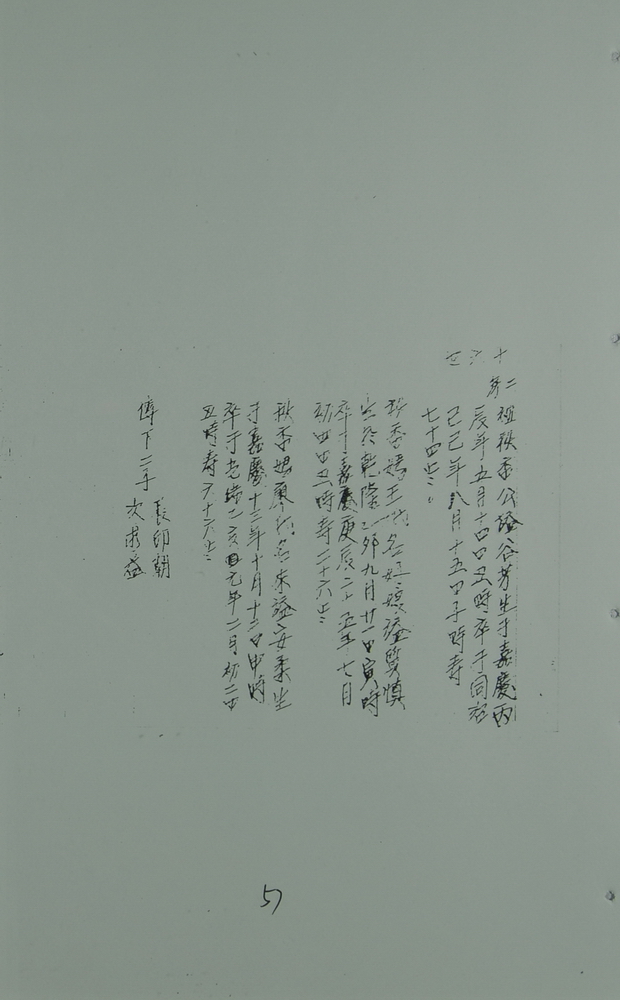 十六世
第二祖秋香公諡谷芳生于嘉慶丙
辰年五月十四日丑時卒于同治
己巳年八月十五日子時壽
七十四歲
秋香媽王氏名好娘諡賢慎
生於乾隆乙卯九月廿一日寅時
卒于嘉慶庚辰二十五年七月
初四日丑時壽二十六歲
秋香媽廖氏名朱諡安柔生
于嘉慶十三年十月十二日申時
卒于光緒乙亥元年二月初二日
丑時壽六十六歲
傳下二子 長印朝
次求益
57